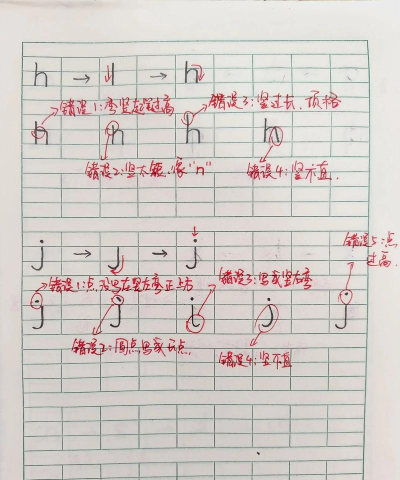 h → l → h
错误1:弯竖起笔过高 错误3:竖过长,顶格
h h h h
错误2:竖太短,像"n" 错误4:竖不直.
j → j → j 错误5:点过高.
错误1:点 没写在竖左弯正上方 错误3:写成竖右弯
j j i j j
错误2:圆点写成长点 错误4:竖不直